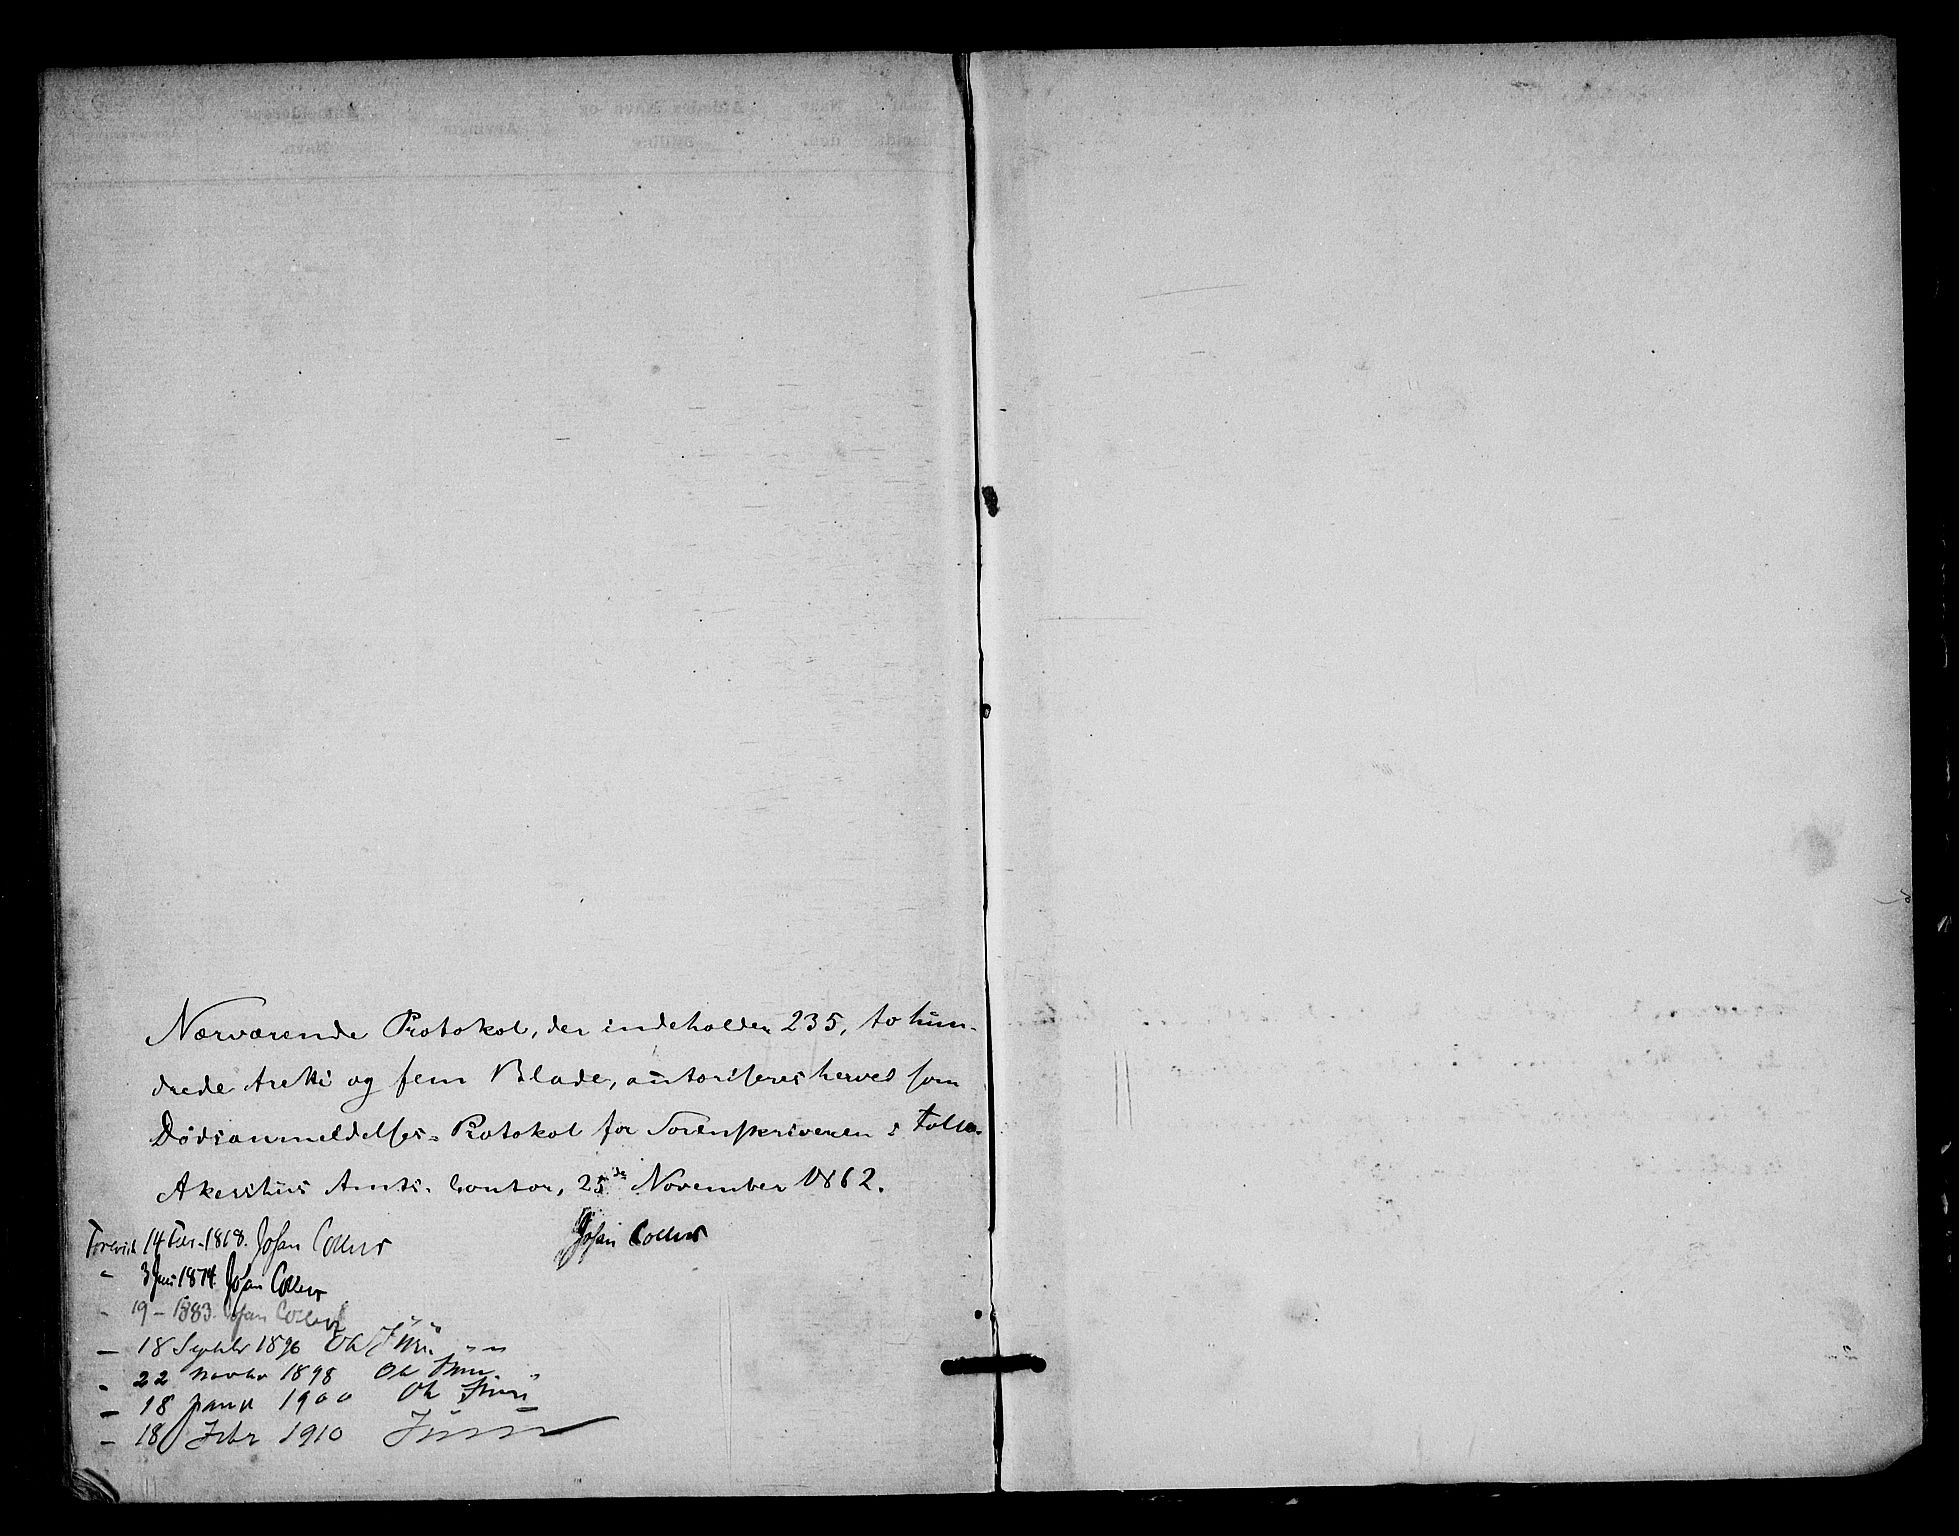 Nærværende Protokol, der indeholder 235, to hun-
drede tretti og fem Blade, autoriseres herved som
Dødsanmeldelses-Protokol for Sorenskriveren i Follo.
Akershus Amts-Contor, 25de November 1862.
Johan Collett
Forevist 14 Febr. 1868. Johan Collett
" 3 Juni 1874. Johan Collett
" 19 - 1883. Johan Collett
" 18 Septbr 1896
" 22 Novbr 1898
" 18 Janu 1900
" 18 Febr 1910